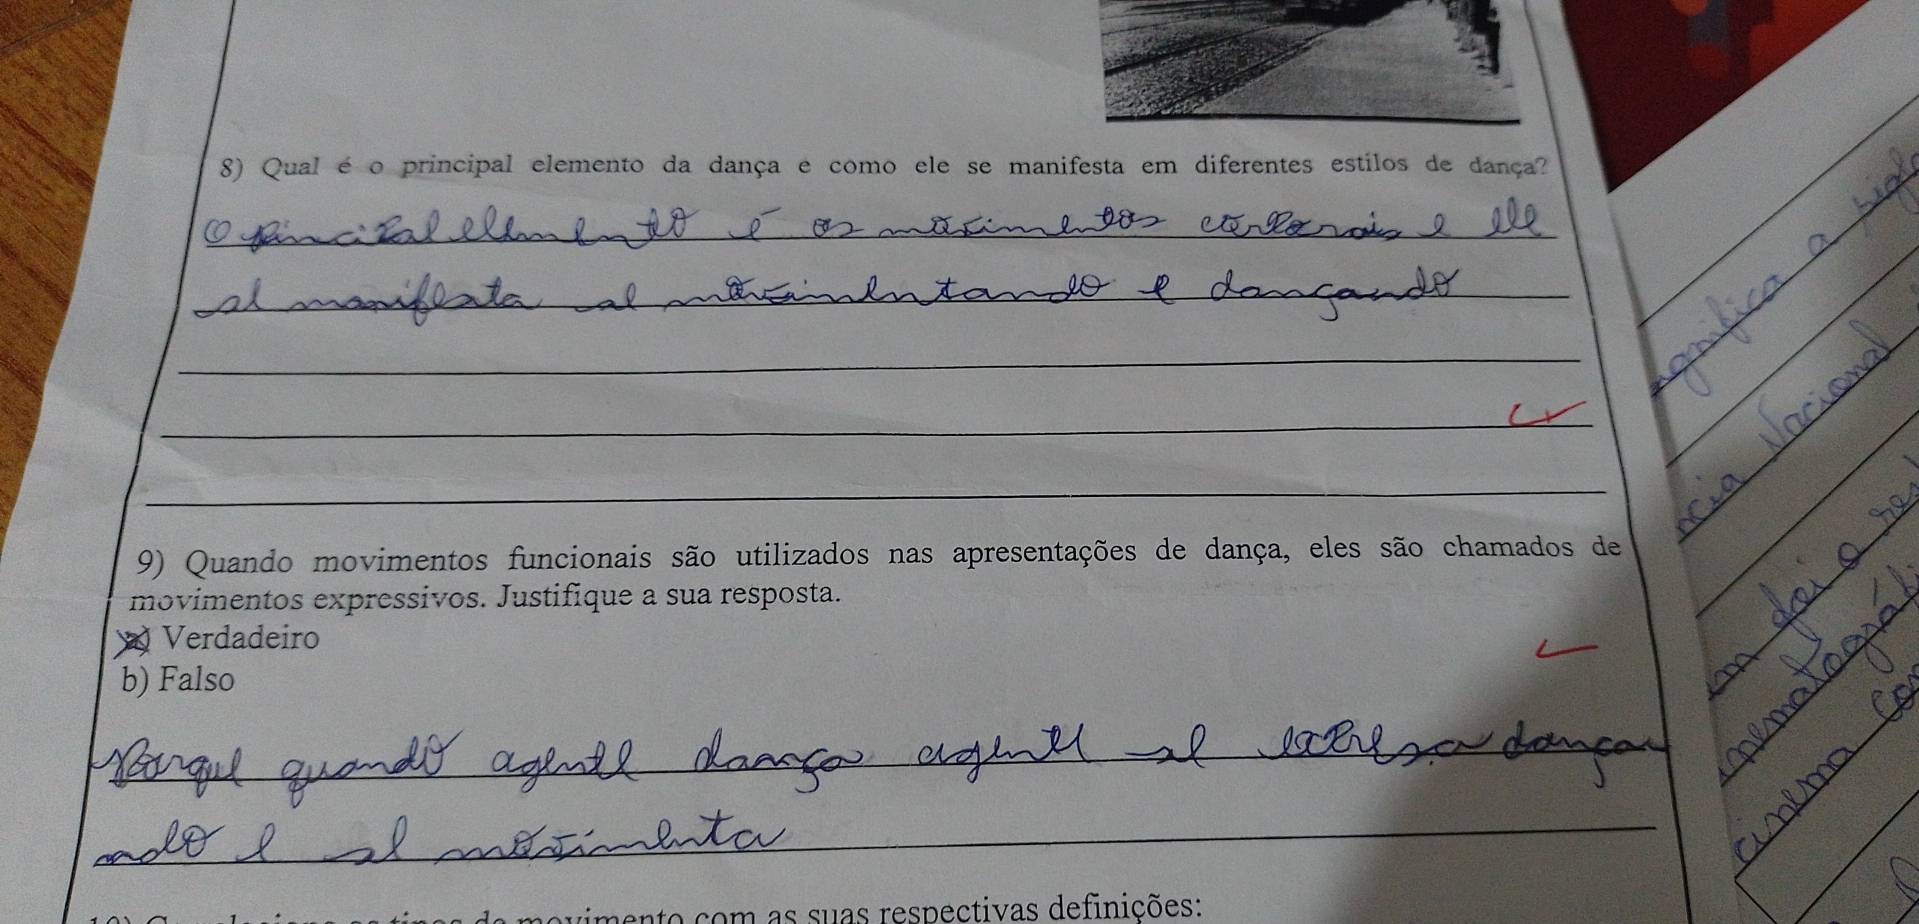 8) Qual é o principal elemento da dança e como ele se manifesta em diferentes estilos de dança?
O principal ellemento é os movimentos corporais e ele
se manifesta se movimentando e dançando
9) Quando movimentos funcionais são utilizados nas apresentações de dança, eles são chamados de
movimentos expressivos. Justifique a sua resposta.
a) Verdadeiro
b) Falso
Porque quando agente dança agente se expresa dançan
ndo e se movimenta
movimento com as suas respectivas definições:
a sigla
significa
ncia Nacional
foi o
cinema